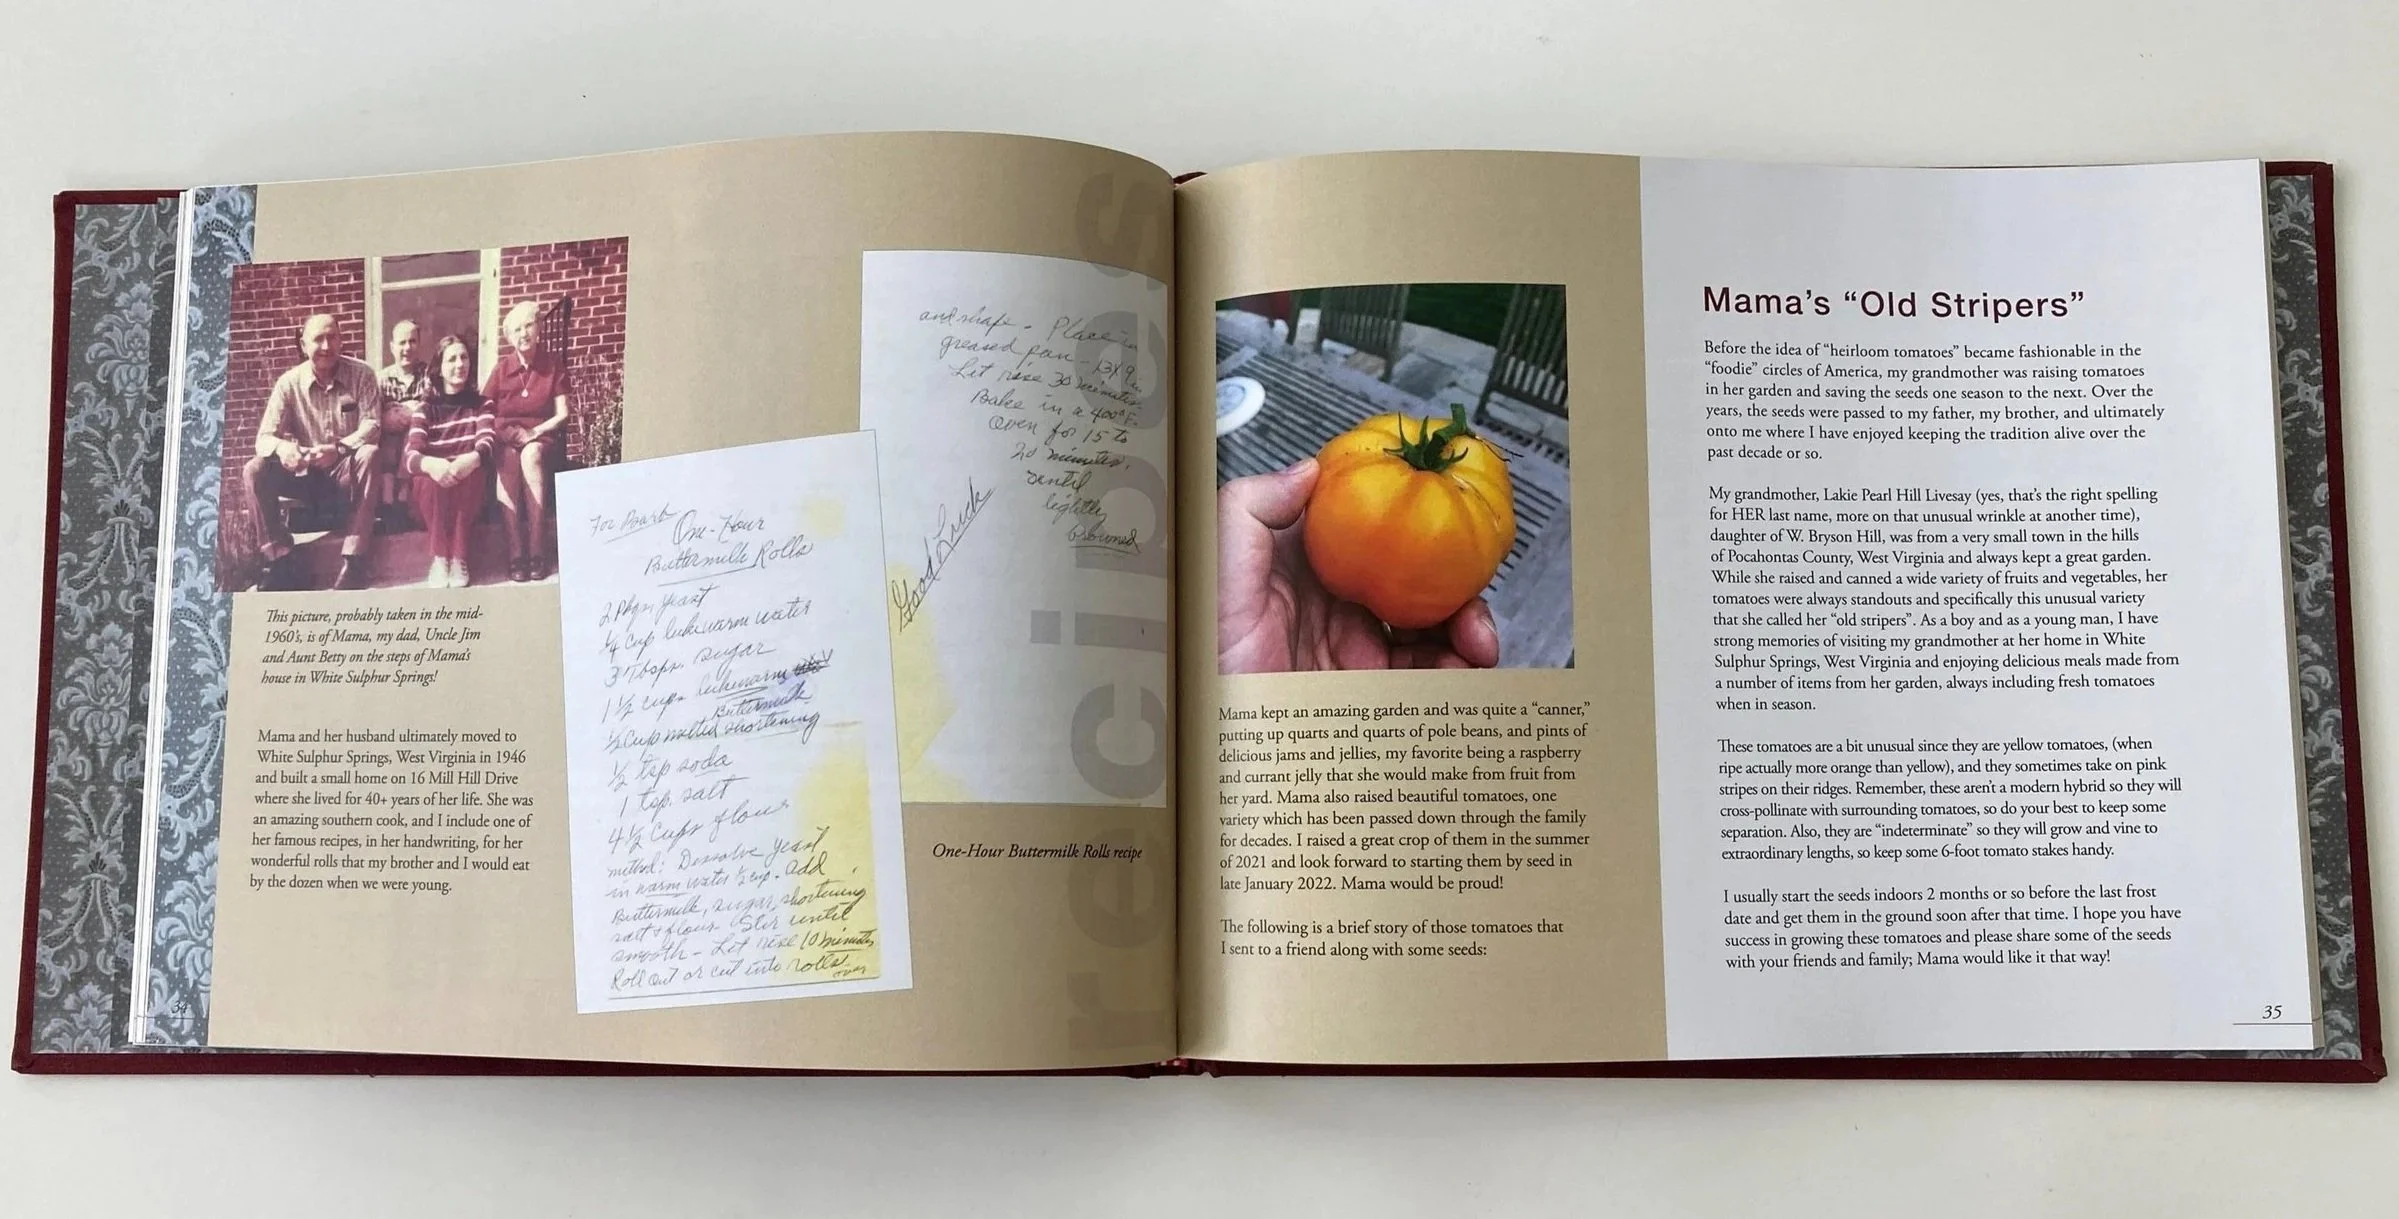 This picture, probably taken in the mid-
1960's, is of Mama, my dad, Uncle Jim
and Aunt Betty on the steps of Mama's
house in White Sulphur Springs!
Mama and her husband ultimately moved to
White Sulphur Springs, West Virginia in 1946
and built a small home on 16 Mill Hill Drive
where she lived for 40+ years of her life. She was
an amazing southern cook, and I include one of
her famous recipes, in her handwriting, for her
wonderful rolls that my brother and I would eat
by the dozen when we were young.
34
For Barb
One-Hour
Buttermilk Rolls
2 Pkgs. yeast
1/4 cup lukewarm water
3 Tbsps. sugar
1 1/2 cups lukewarm
Buttermilk
1/2 cup melted shortening
1/2 tsp soda
1 tsp. salt
4 1/2 cups flour
method: Dissolve yeast
in warm water 1/2 cup. add
Buttermilk, sugar, shortening
salt & flour. Stir until
smooth - Let rise 10 minutes
Roll out or cut into rolls
over
and shape - Place in
greased pan - 13X9 in
Let rise 30 minutes
Bake in a 400° F.
Oven for 15 to
20 minutes,
until
lightly
browned
Good Luck
One-Hour Buttermilk Rolls recipe
recipes
Mama kept an amazing garden and was quite a “canner,”
putting up quarts and quarts of pole beans, and pints of
delicious jams and jellies, my favorite being a raspberry
and currant jelly that she would make from fruit from
her yard. Mama also raised beautiful tomatoes, one
variety which has been passed down through the family
for decades. I raised a great crop of them in the summer
of 2021 and look forward to starting them by seed in
late January 2022. Mama would be proud!
The following is a brief story of those tomatoes that
I sent to a friend along with some seeds:
Mama's “Old Stripers”
Before the idea of “heirloom tomatoes” became fashionable in the
“foodie” circles of America, my grandmother was raising tomatoes
in her garden and saving the seeds one season to the next. Over the
years, the seeds were passed to my father, my brother, and ultimately
onto me where I have enjoyed keeping the tradition alive over the
past decade or so.
My grandmother, Lakie Pearl Hill Livesay (yes, that's the right spelling
for HER last name, more on that unusual wrinkle at another time),
daughter of W. Bryson Hill, was from a very small town in the hills
of Pocahontas County, West Virginia and always kept a great garden.
While she raised and canned a wide variety of fruits and vegetables, her
tomatoes were always standouts and specifically this unusual variety
that she called her “old stripers”. As a boy and as a young man, I have
strong memories of visiting my grandmother at her home in White
Sulphur Springs, West Virginia and enjoying delicious meals made from
a number of items from her garden, always including fresh tomatoes
when in season.
These tomatoes are a bit unusual since they are yellow tomatoes, (when
ripe actually more orange than yellow), and they sometimes take on pink
stripes on their ridges. Remember, these aren't a modern hybrid so they will
cross-pollinate with surrounding tomatoes, so do your best to keep some
separation. Also, they are “indeterminate” so they will grow and vine to
extraordinary lengths, so keep some 6-foot tomato stakes handy.
I usually start the seeds indoors 2 months or so before the last frost
date and get them in the ground soon after that time. I hope you have
success in growing these tomatoes and please share some of the seeds
with your friends and family; Mama would like it that way!
35